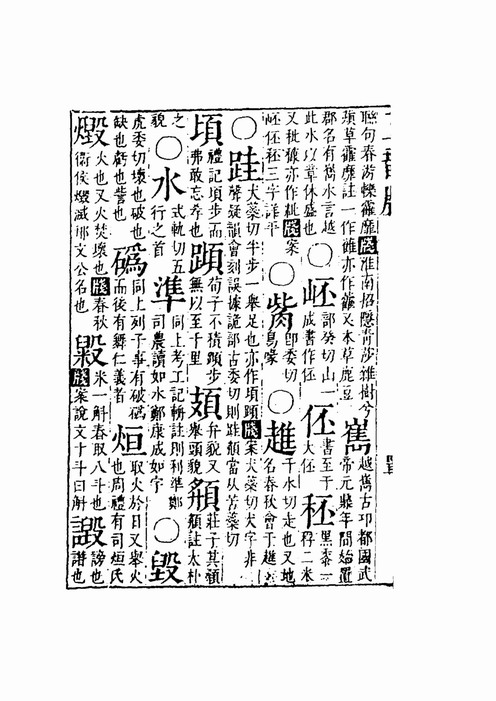 聮句春游轢靃靡牋淮南招隱青莎雜樹兮
蘋草靃靡註一作雖亦作䕌又本草鹿豆 巂 越巂古邛都國武帝元鼎年間始置
郡名有巂水言越此水以章休盛也 ○岯 部癸切山一成書作伾 伾 書至于大伾 秠 黑黍一稃二米
又秕亦作粃牋案岯伾秠三字詳平 ○觜 即委切鳥喙 ○趡 千水切走也又地名春秋會于趡
○跬 犬蘂切半步一舉足也亦作頃頍牋案犬蘂切犬字非聲疑韻會刻誤據詭部古委切則跬頍當从苦蘂切
頃 禮記頃步而弗敢忘孝也 蹞 荀子不積蹞步無以至千里 頍 弁貌又舉頭貌 頯 莊子其顙頯註太朴
之貌 ○水 式軌切五行之首 準 同上考工記輈註則利準鄭司農讀如水鄭康成如字 ○毀
虎委切壞也破也缺也虧也訾也 䃣 同上列子事有破䃣而後有舞仁義者 烜 取火於日又舉火也周禮有司烜氏
燬 火也又火焚壞也牋春秋衛侯燬滅邢文公名也 毇 米一斛舂取八斗也牋案說文十斗曰斛 譭 謗也譖也